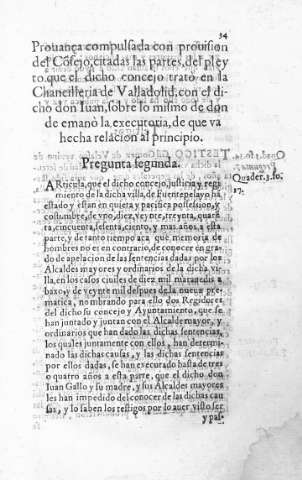 34
Prouança compulsada con prouision
del Cõsejo, citadas las partes, del pley
to que el dicho concejo trato en la
Chancilleria de Valladolid, con el di
cho don Iuan, sobre lo mismo de don
de emanò la executoria, de que va
hecha relacion al principio.
Pregunta segunda.
Quader. 3. fo.
17.
ARticula, que el dicho concejo, justicia y regi
miento de la dicha villa, de Fuentepelayo ha
estado y estan en quieta y pacifica possession, y
costumbre, de vno, diez, veynte, treynta, quarẽ
ta, cincuenta, sesenta, ciento, y mas años a esta
parte, y de tanto tiempo acà que memoria de
hombres no es en contrario, de conocer en gra
do de apelacion de las sentencias dadas por los
Alcaldes mayores y ordinarios de la dicha vi
lla, en los casos ciuiles de diez mil marauedis a
baxo y de veynte mil despues de la nueua pre-
matica, nombrando para ello dos Regidores
del dicho su concejo y Ayuntamiento, que se
han juntado y juntan con el Alcalde mayor, y
ordinarios que han dado las dichas sentencias,
los quales juntamente con ellos, han determi
nado las dichas causas, y las dichas sentencias
por ellos dadas, se han executado hasta de tres
o quatro años a esta parte, que el dicho don
Iuan Gallo y su madre, y sus Alcaldes mayores
les han impedido del conocer de las dichas cau
sas, y lo saben los testigos por lo auer visto ser
y pas-